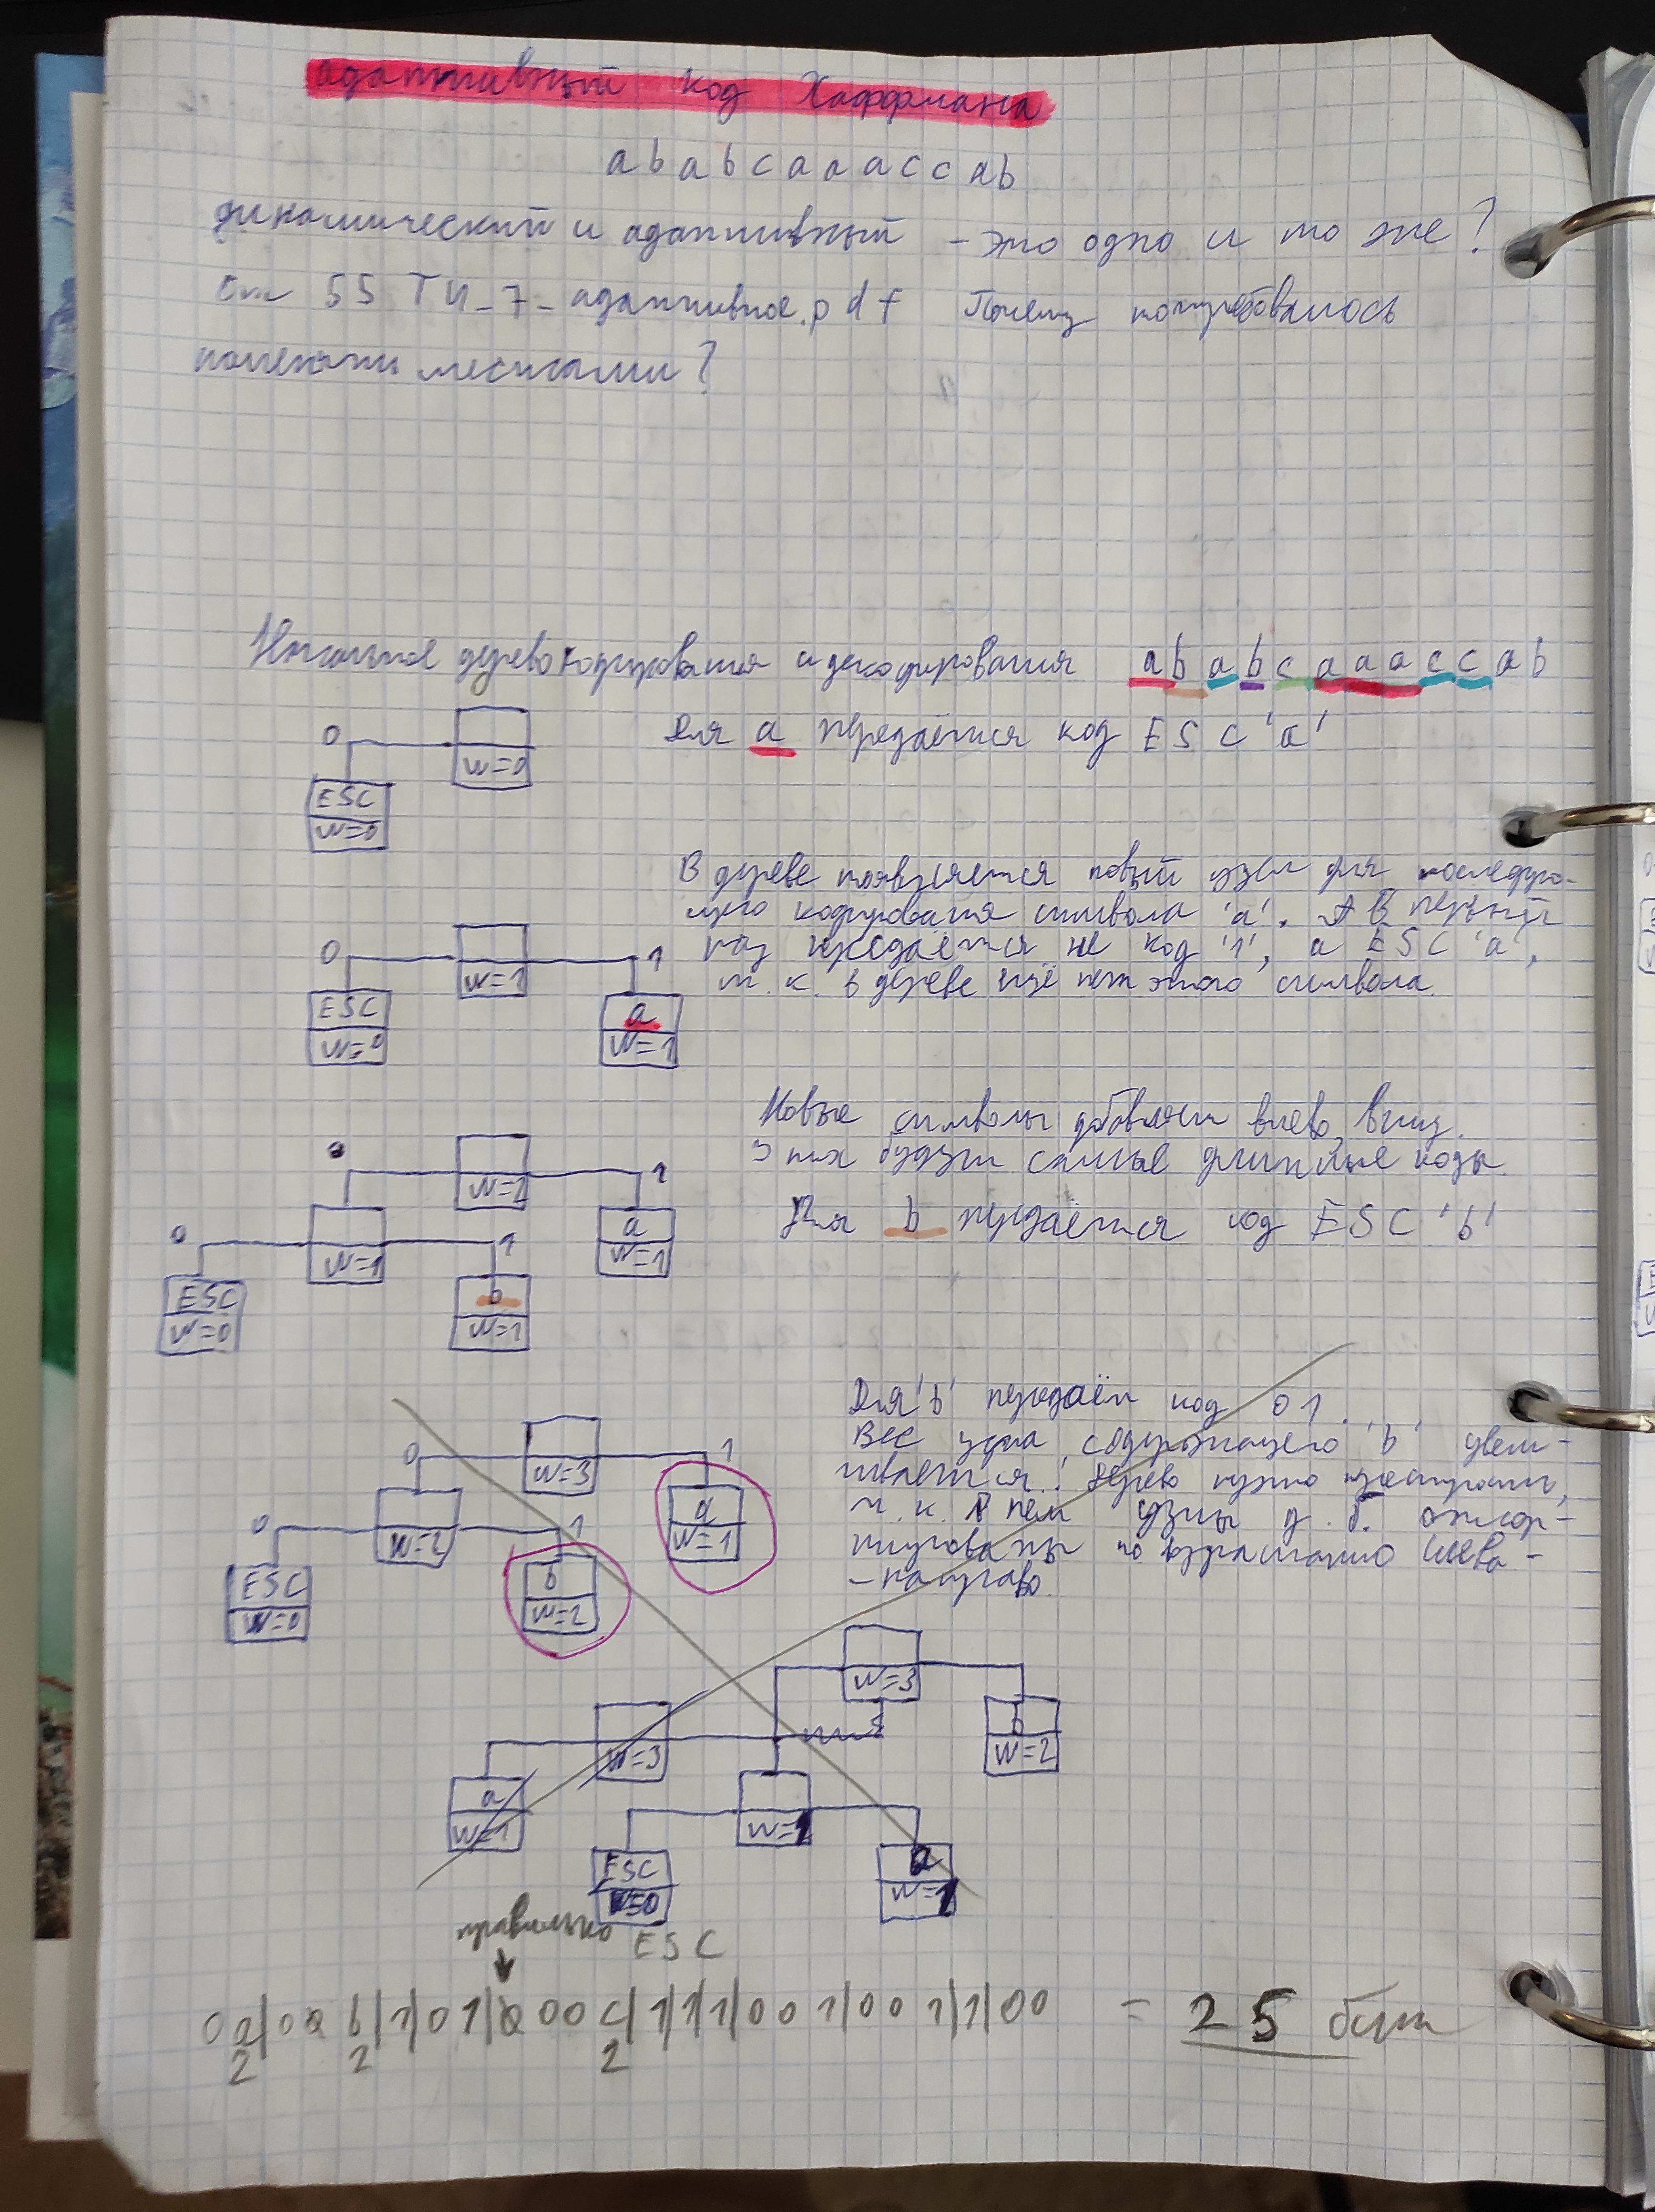 адаптивный код Хаффмана
a b a b c a a a c c a b
динамический и адаптивный – это одно и то же?
См 55 ТИ_7_адаптивное.pdf Почему потребовалось
поменять местами?
Начальное дерево кодирования и декодирования a b a b c a a a c c a b
0
W=0
ESC
W=0
Для a передаётся код ESC 'a'
В дереве появляется новый узел для последую-
щего кодирования символа 'a'. В первый
раз передаётся не код '1', а ESC 'a',
т. к. в дереве ещё нет этого символа.
0 1
W=1
ESC
W=0
a
W=1
Новые символы добавляем влево, вниз.
У них будут самые длинные коды.
Для b передаётся код ESC 'b'
1
W=2
0 1
W=1
a
W=1
ESC
W=0
b
W=1
Для 'b' передаём код 01.
Вес узла, содержащего 'b' увели-
чивается. Дерево нужно перестроить,
т. к. в нем узлы д. б. отсор-
тированы по возрастанию слева-
-направо.
0 1
W=3
0 1
W=2
a
W=1
ESC
W=0
b
W=2
W=3
W=3
b
W=2
a
W=1
W=1
ESC
W=0
a
W=1
правильно
ESC
0a|00 b|1|01|000 c|1|1|1|001|001|1|00 = 25 бит
2 2 2